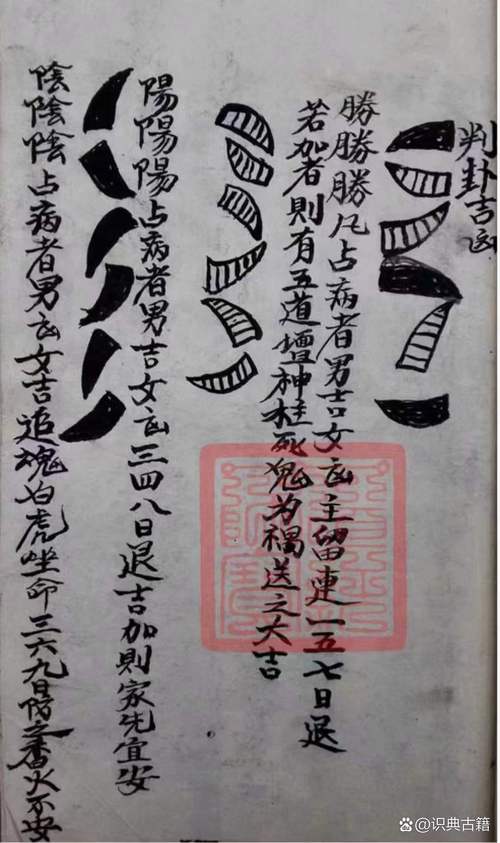 判卦吉凶
勝勝勝凡占病者男吉女凶主留連一五七日退
若加者則有五道壇神枉死鬼为禍送之大吉
陽陽陽占病者男吉女凶三四八日退吉加則家先宜安
陰陰陰占病者男凶女吉追魂白虎坐命三六九日防之香火不安
@识典古籍